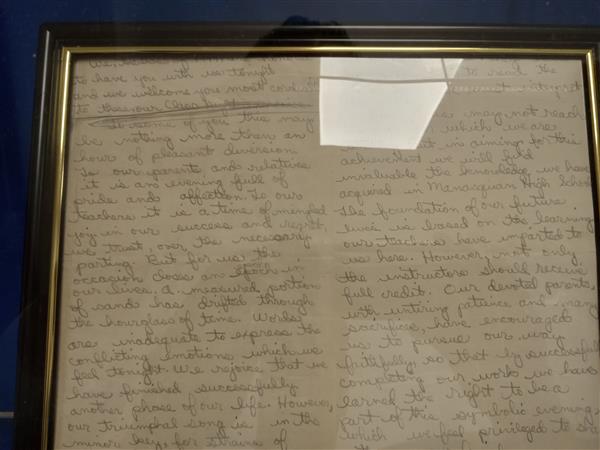 to have you with us tonight
and we welcome you most cordially
to these our Class Night
To some of you this may
be nothing more than an
hour of pleasant diversion
To our parents and relatives
it is an evening full of
pride and affection. To our
teachers it is a time of mingled
joy in our success and regret,
we trust, over the necessary
parting. But for us the
occasion closes an epoch in
our lives. A measured portion
of sand has drifted through
the hourglass of time. Words
are inadequate to express the
conflicting emotions which we
feel tonight. We rejoice that we
have finished successfully
another phase of our life. However,
our triumphal song is in the
minor key, for strains of
to reach the
may not reach
which we are
but in aiming for this
achievement we will find
invaluable the knowledge we have
acquired in Manasquan High School
The foundation of our future
lives is based on the learning
our teachers have imparted to
us here. However, not only
the instructors should receive
full credit. Our devoted parents,
with untiring patience and many
sacrifices, have encouraged
us to pursue our way
faithfully, so that by successfully
completing our work we have
earned the right to be a
part of this symbolic evening,
which we feel privileged to